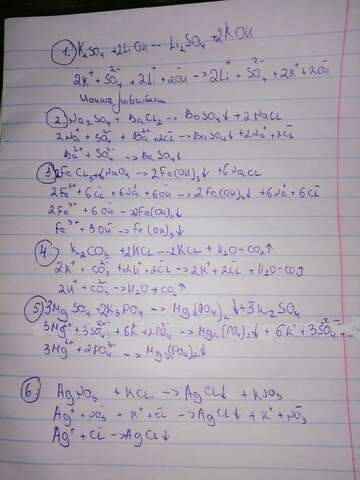 1. K₂SO₄ + 2LiOH → Li₂SO₄ + 2KOH
2K⁺ + SO₄²⁻ + 2Li⁺ + 2OH⁻ → 2Li⁺ + SO₄²⁻ + 2K⁺ + 2OH⁻
2) Na₂SO₄ + BaCl₂ → BaSO₄↓ + 2NaCl
2Na⁺ + SO₄²⁻ + Ba²⁺ + 2Cl⁻ → BaSO₄↓ + 2Na⁺ + 2Cl⁻
Ba²⁺ + SO₄²⁻ → BaSO₄↓
3) 2FeCl₃ + 6NaOH → 2Fe(OH)₃↓ + 6NaCl
2Fe³⁺ + 6Cl⁻ + 6Na⁺ + 6OH⁻ → 2Fe(OH)₃↓ + 6Na⁺ + 6Cl⁻
2Fe³⁺ + 6OH⁻ → 2Fe(OH)₃↓
Fe³⁺ + 3OH⁻ → Fe(OH)₃↓
4) K₂CO₃ + 2HCl → 2KCl + H₂O + CO₂↑
2K⁺ + CO₃²⁻ + 2H⁺ + 2Cl⁻ → 2K⁺ + 2Cl⁻ + H₂O + CO₂↑
2H⁺ + CO₃²⁻ → H₂O + CO₂↑
5) 3MgSO₄ + 2K₃PO₄ → Mg₃(PO₄)₂↓ + 3K₂SO₄
3Mg²⁺ + 3SO₄²⁻ + 6K⁺ + 2PO₄³⁻ → Mg₃(PO₄)₂↓ + 6K⁺ + 3SO₄²⁻
3Mg²⁺ + 2PO₄³⁻ → Mg₃(PO₄)₂↓
6) AgNO₃ + KCl → AgCl↓ + KNO₃
Ag⁺ + NO₃⁻ + K⁺ + Cl⁻ → AgCl↓ + K⁺ + NO₃⁻
Ag⁺ + Cl⁻ → AgCl↓